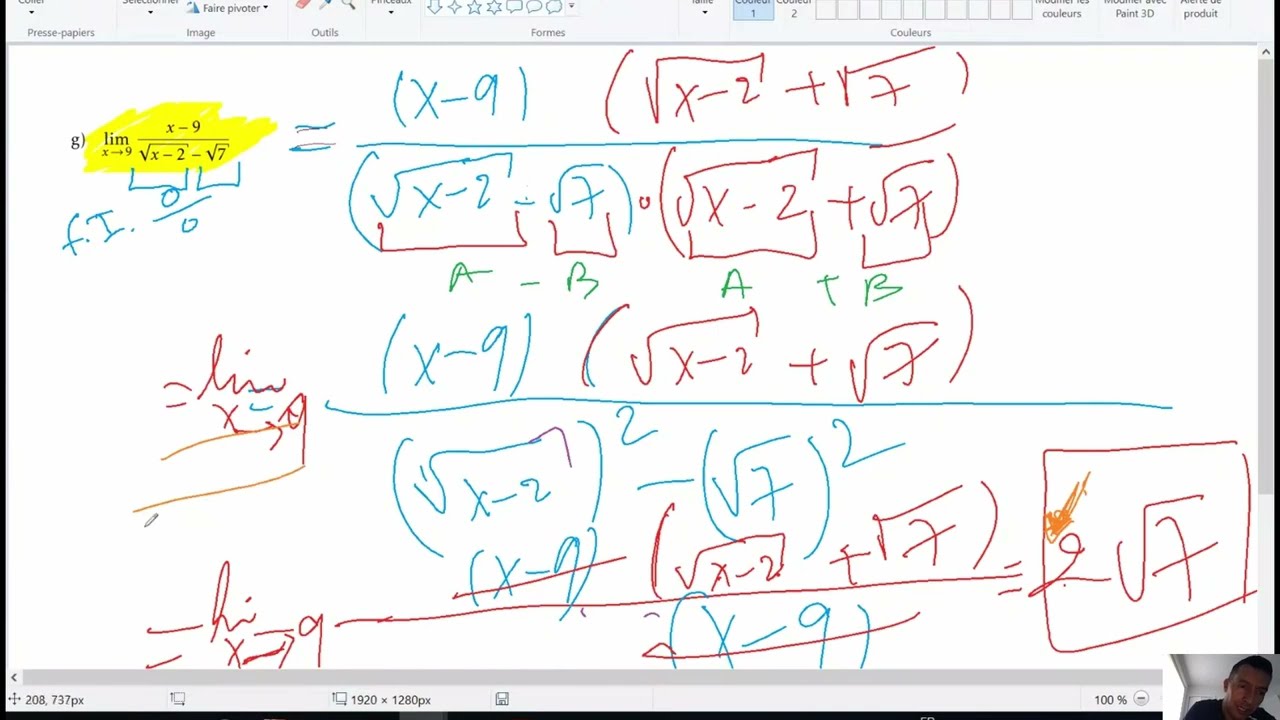 Coller
Sélectionner
Faire pivoter
Pinceaux
Taille
Couleur 1
Couleur 2
Modifier les couleurs
Modifier avec Paint 3D
Alerte de produit
Presse-papiers Image Outils Formes Couleurs
(x-9) (√x-2 + √7)
g) lim x→9 x − 9 / √x − 2 − √7 =
(√x-2 - √7) • (√x-2 + √7)
0/0
f.I.
A - B A + B
(x-9) (√x-2 + √7)
= lim x→9
(√x-2)² - (√7)²
(x-9) (√x-2 + √7) = 2 √7
= lim x→9
(x-9)
208, 737px 1920 × 1280px 100 %